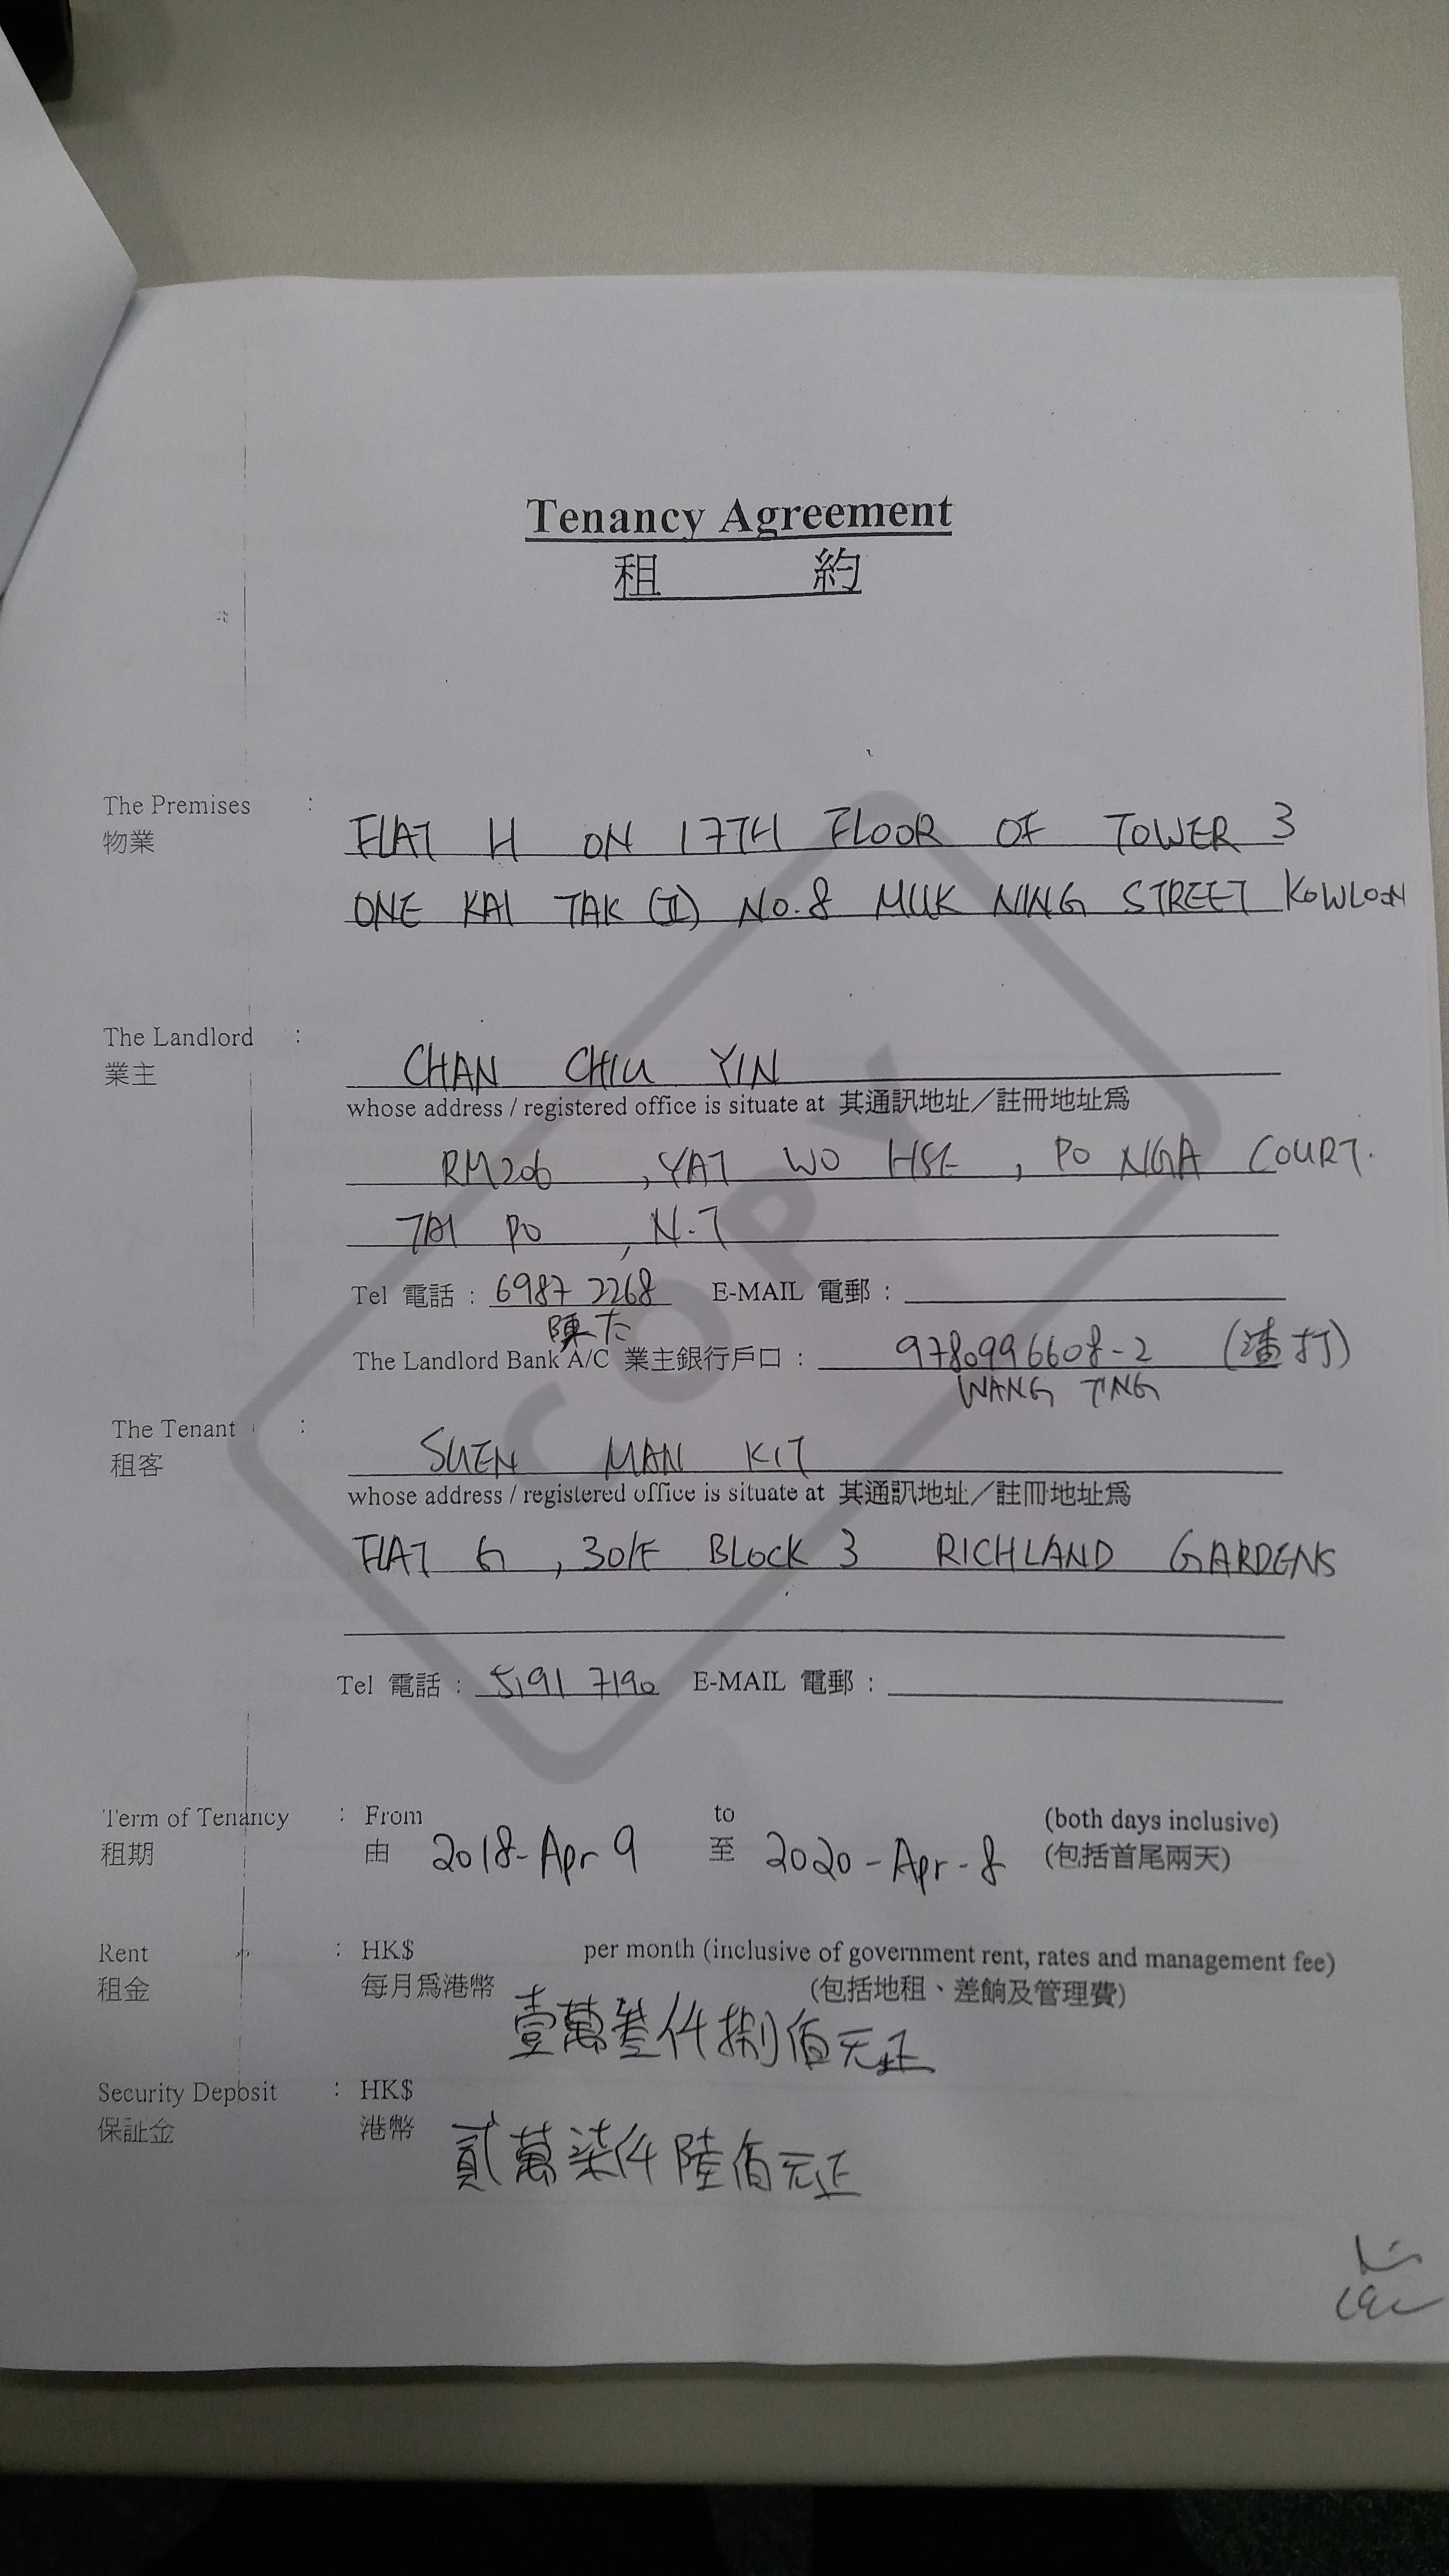 Tenancy Agreement
租 約
The Premises :
物業
FLAT H ON 17TH FLOOR OF TOWER 3
ONE KAI TAK (II) NO.8 MUK NING STREET KOWLOON
The Landlord :
業主
CHAN CHIU YIN
whose address / registered office is situate at 其通訊地址／註冊地址爲
RM206 , YAT WO HSE , PO NGA COURT.
TAI PO , N.T
Tel 電話 : 6987 2268 E-MAIL 電郵 :
陳
The Landlord Bank A/C 業主銀行戶口 : 9780996608-2 (渣打)
WANG TING
The Tenant :
租客
SUEN MAN KIT
whose address / registered office is situate at 其通訊地址／註冊地址爲
FLAT G , 30/F BLOCK 3 RICHLAND GARDENS
Tel 電話 : 5191 7190 E-MAIL 電郵 :
Term of Tenancy : From to (both days inclusive)
租期 由 2018-Apr 9 至 2020-Apr-8 (包括首尾兩天)
Rent : HK$ per month (inclusive of government rent, rates and management fee)
租金 每月爲港幣 (包括地租、差餉及管理費)
壹萬叁仟捌佰元正
Security Deposit : HK$
保証金 港幣 貳萬柒仟陸佰元正
COPY